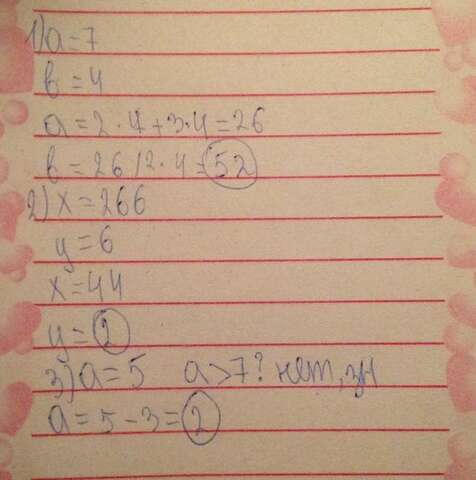 1) a=7
b=4
a=2·7+3·4=26
b=26/2·4=52
2) x=266
y=6
x=44
y=2
3) a=5 a>7? нет, зн
a=5-3=2